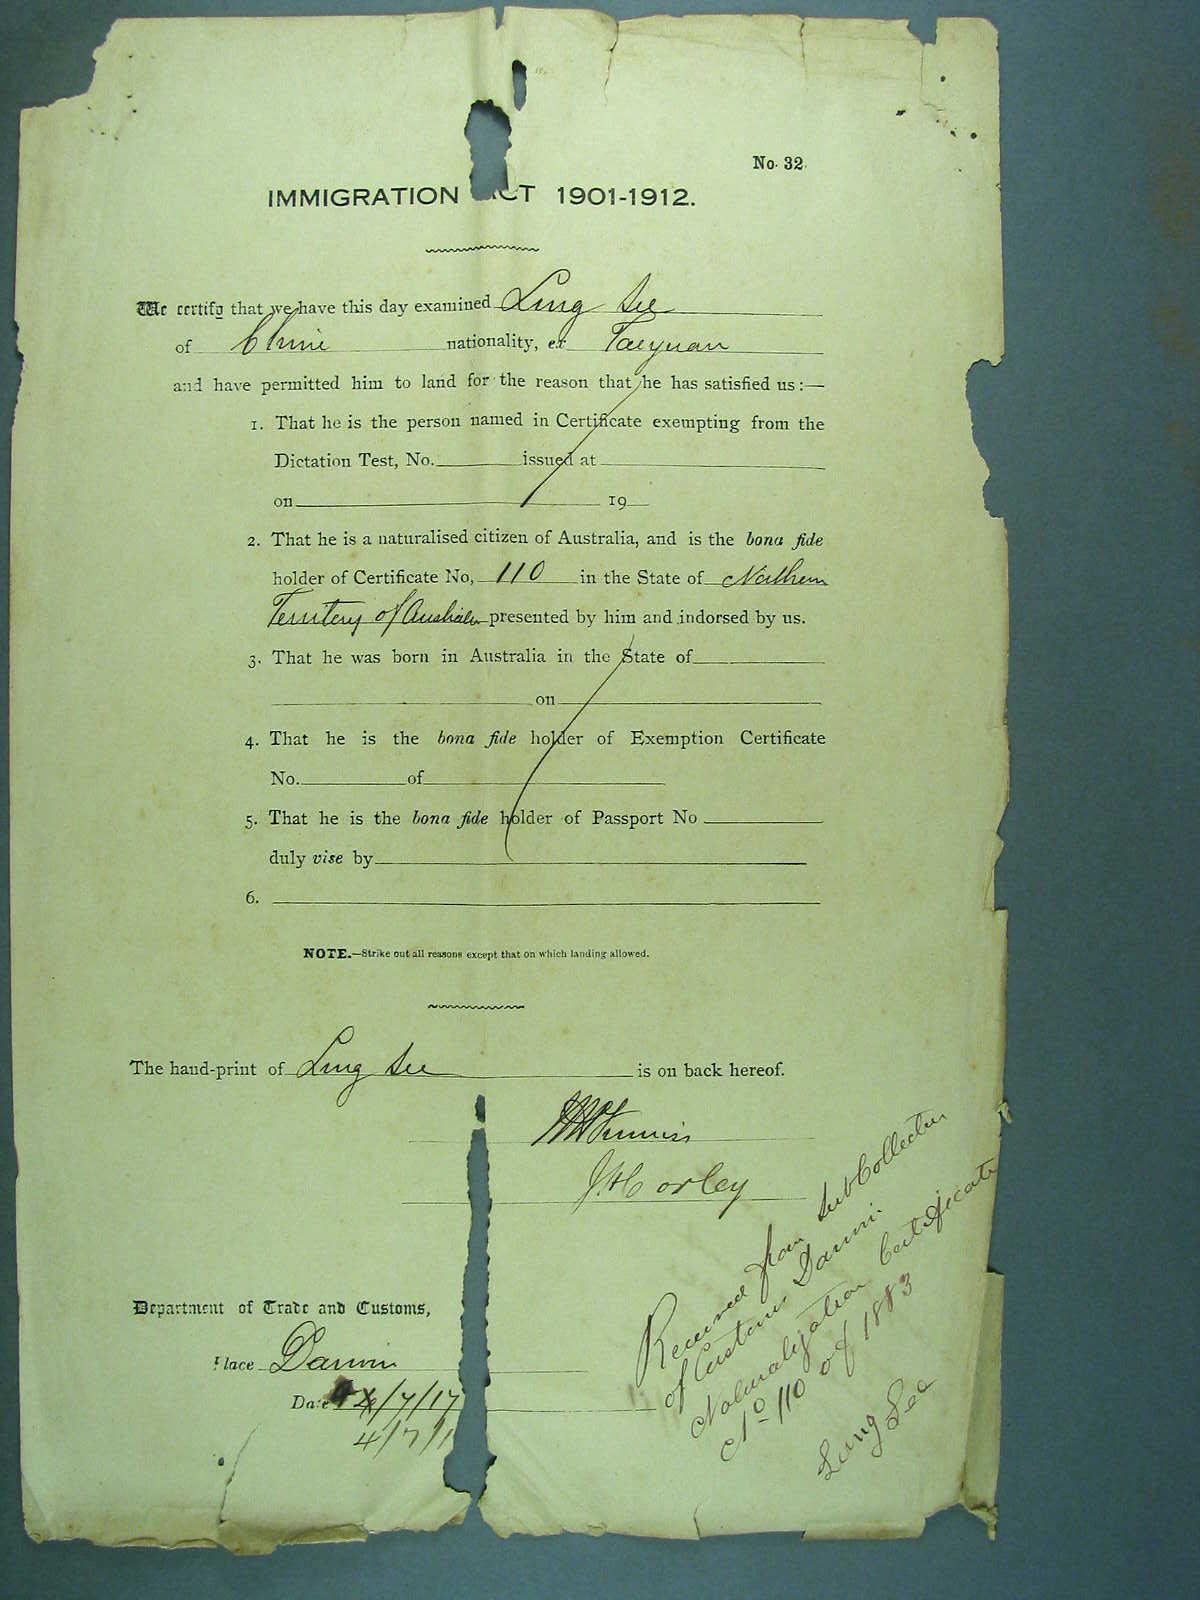 No. 32.
IMMIGRATION ACT 1901-1912.
We certify that we have this day examined Ling See
of Chine nationality, ex Taiyuan
and have permitted him to land for the reason that he has satisfied us:—
1. That he is the person named in Certificate exempting from the
Dictation Test, No. issued at
on 19
2. That he is a naturalised citizen of Australia, and is the bona fide
holder of Certificate No, 110 in the State of Northern
Territory of Australia presented by him and indorsed by us.
3. That he was born in Australia in the State of
on
4. That he is the bona fide holder of Exemption Certificate
No. of
5. That he is the bona fide holder of Passport No
duly vise by
6.
NOTE.—Strike out all reasons except that on which landing allowed.
The hand-print of Ling See is on back hereof.
J.H. Corley
Department of Trade and Customs,
Place Darwin
Date 4/7/17
4/7/1
Received from Sub Collector
of Customs Darwin.
Naturalization Certificate
No 110 of 1883
Ling See